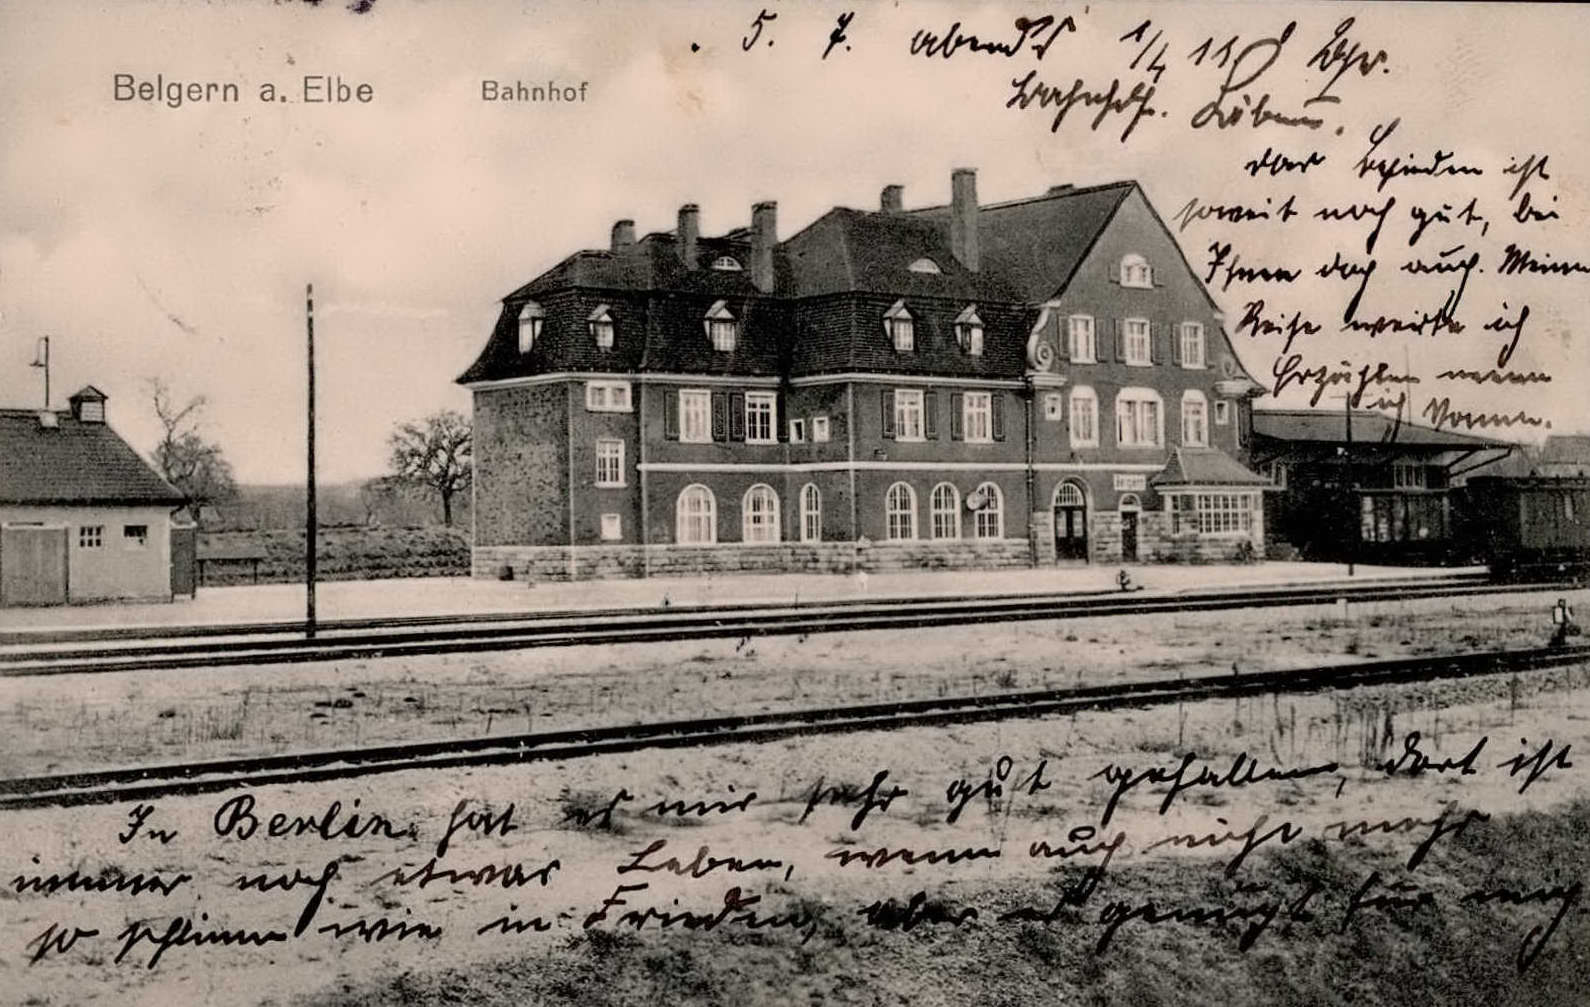 Belgern a. Elbe Bahnhof
. 5. 7. abends 1/4 11 Uhr.
Bahnhof.
ist
soweit noch gut, bei
Ihnen doch auch. Meine
Reise werde ich
Erzählen wenn
ich komm.
In Berlin hat es mir sehr gut gefallen, dort ist
immer noch etwas Leben, wenn auch nicht mehr
so schlimm wie in Frieden, aber es genügt für mich